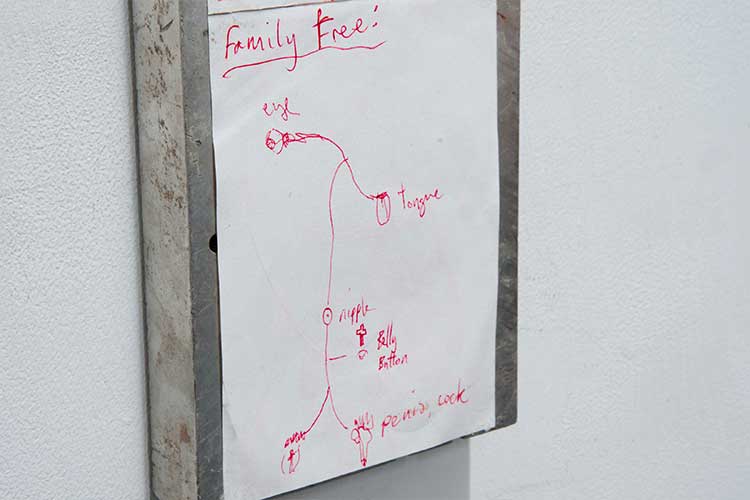 Family Tree:
eye
tongue
nipple
Belly
Button
penis, cock